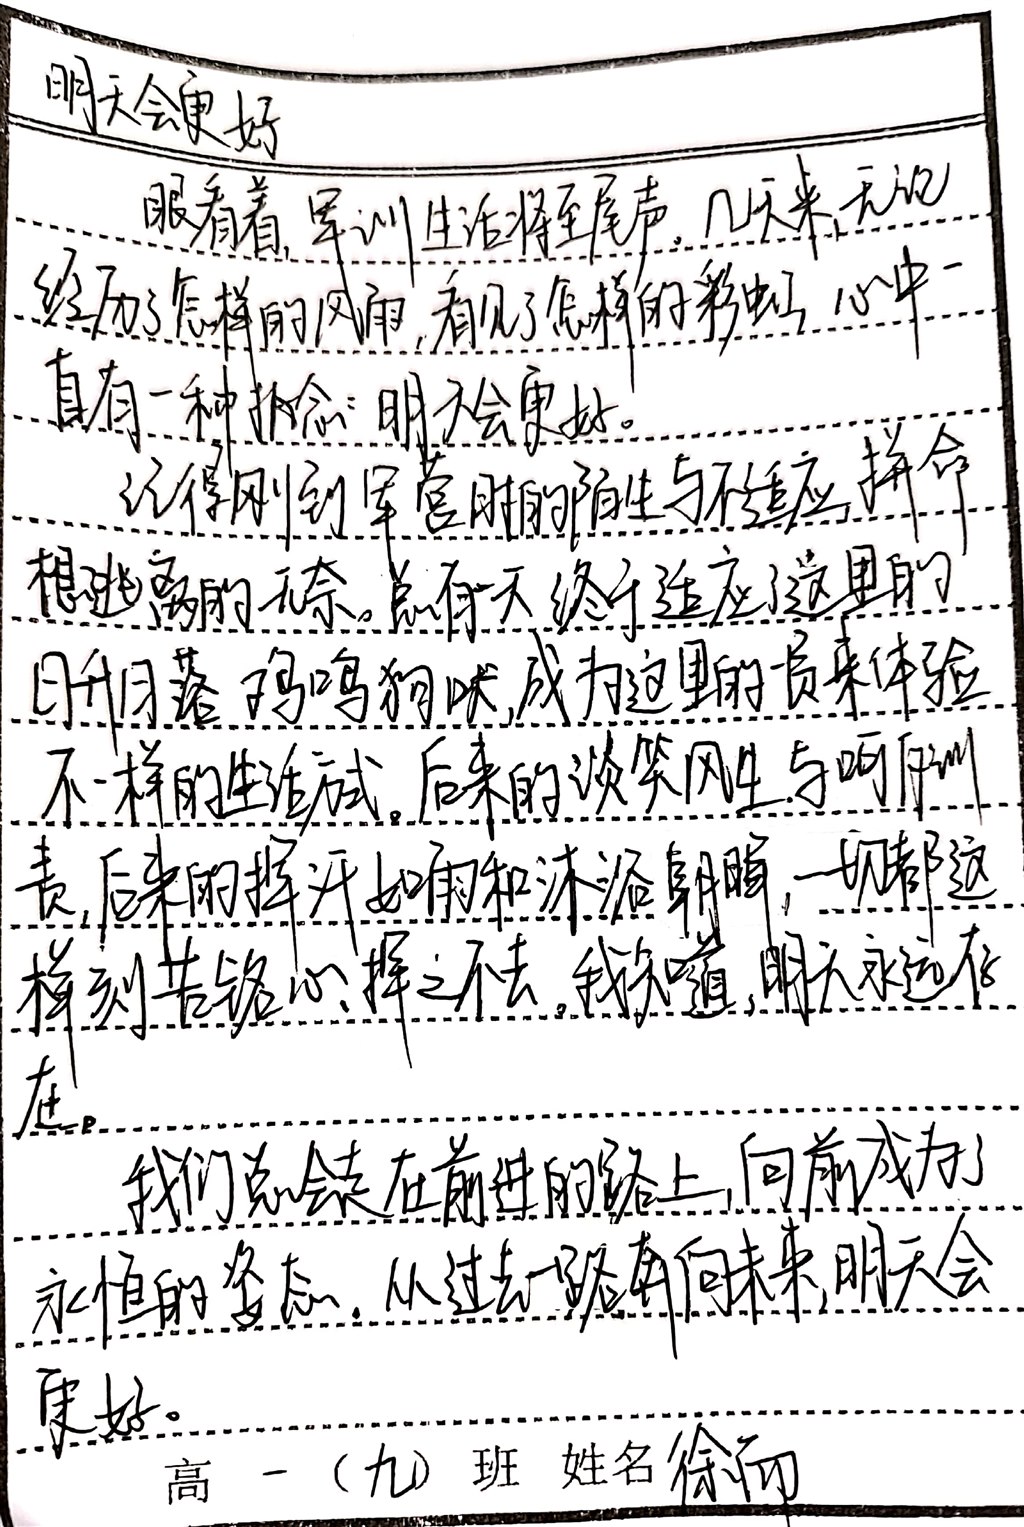 明天会更好
眼看着,军训生活将至尾声。几天来,无论
经历了怎样的风雨,看见了怎样的彩虹,心中一
直有一种执念:明天会更好。
记得刚到军营时的陌生与不适应,拼命
想逃离的无奈。总有一天终于适应了这里的
日升月落 鸡鸣狗吠,成为这里的一员来体验
不一样的生活方式。后来的谈笑风生与呵斥训
责,后来的挥汗如雨和沐浴朝晖,一切都这
样刻苦铭心、挥之不去。我知道,明天永远存
在。
我们总会走在前进的路上,向前成为了
永恒的姿态。从过去一路奔向未来,明天会
更好。
高一(九)班 姓名徐